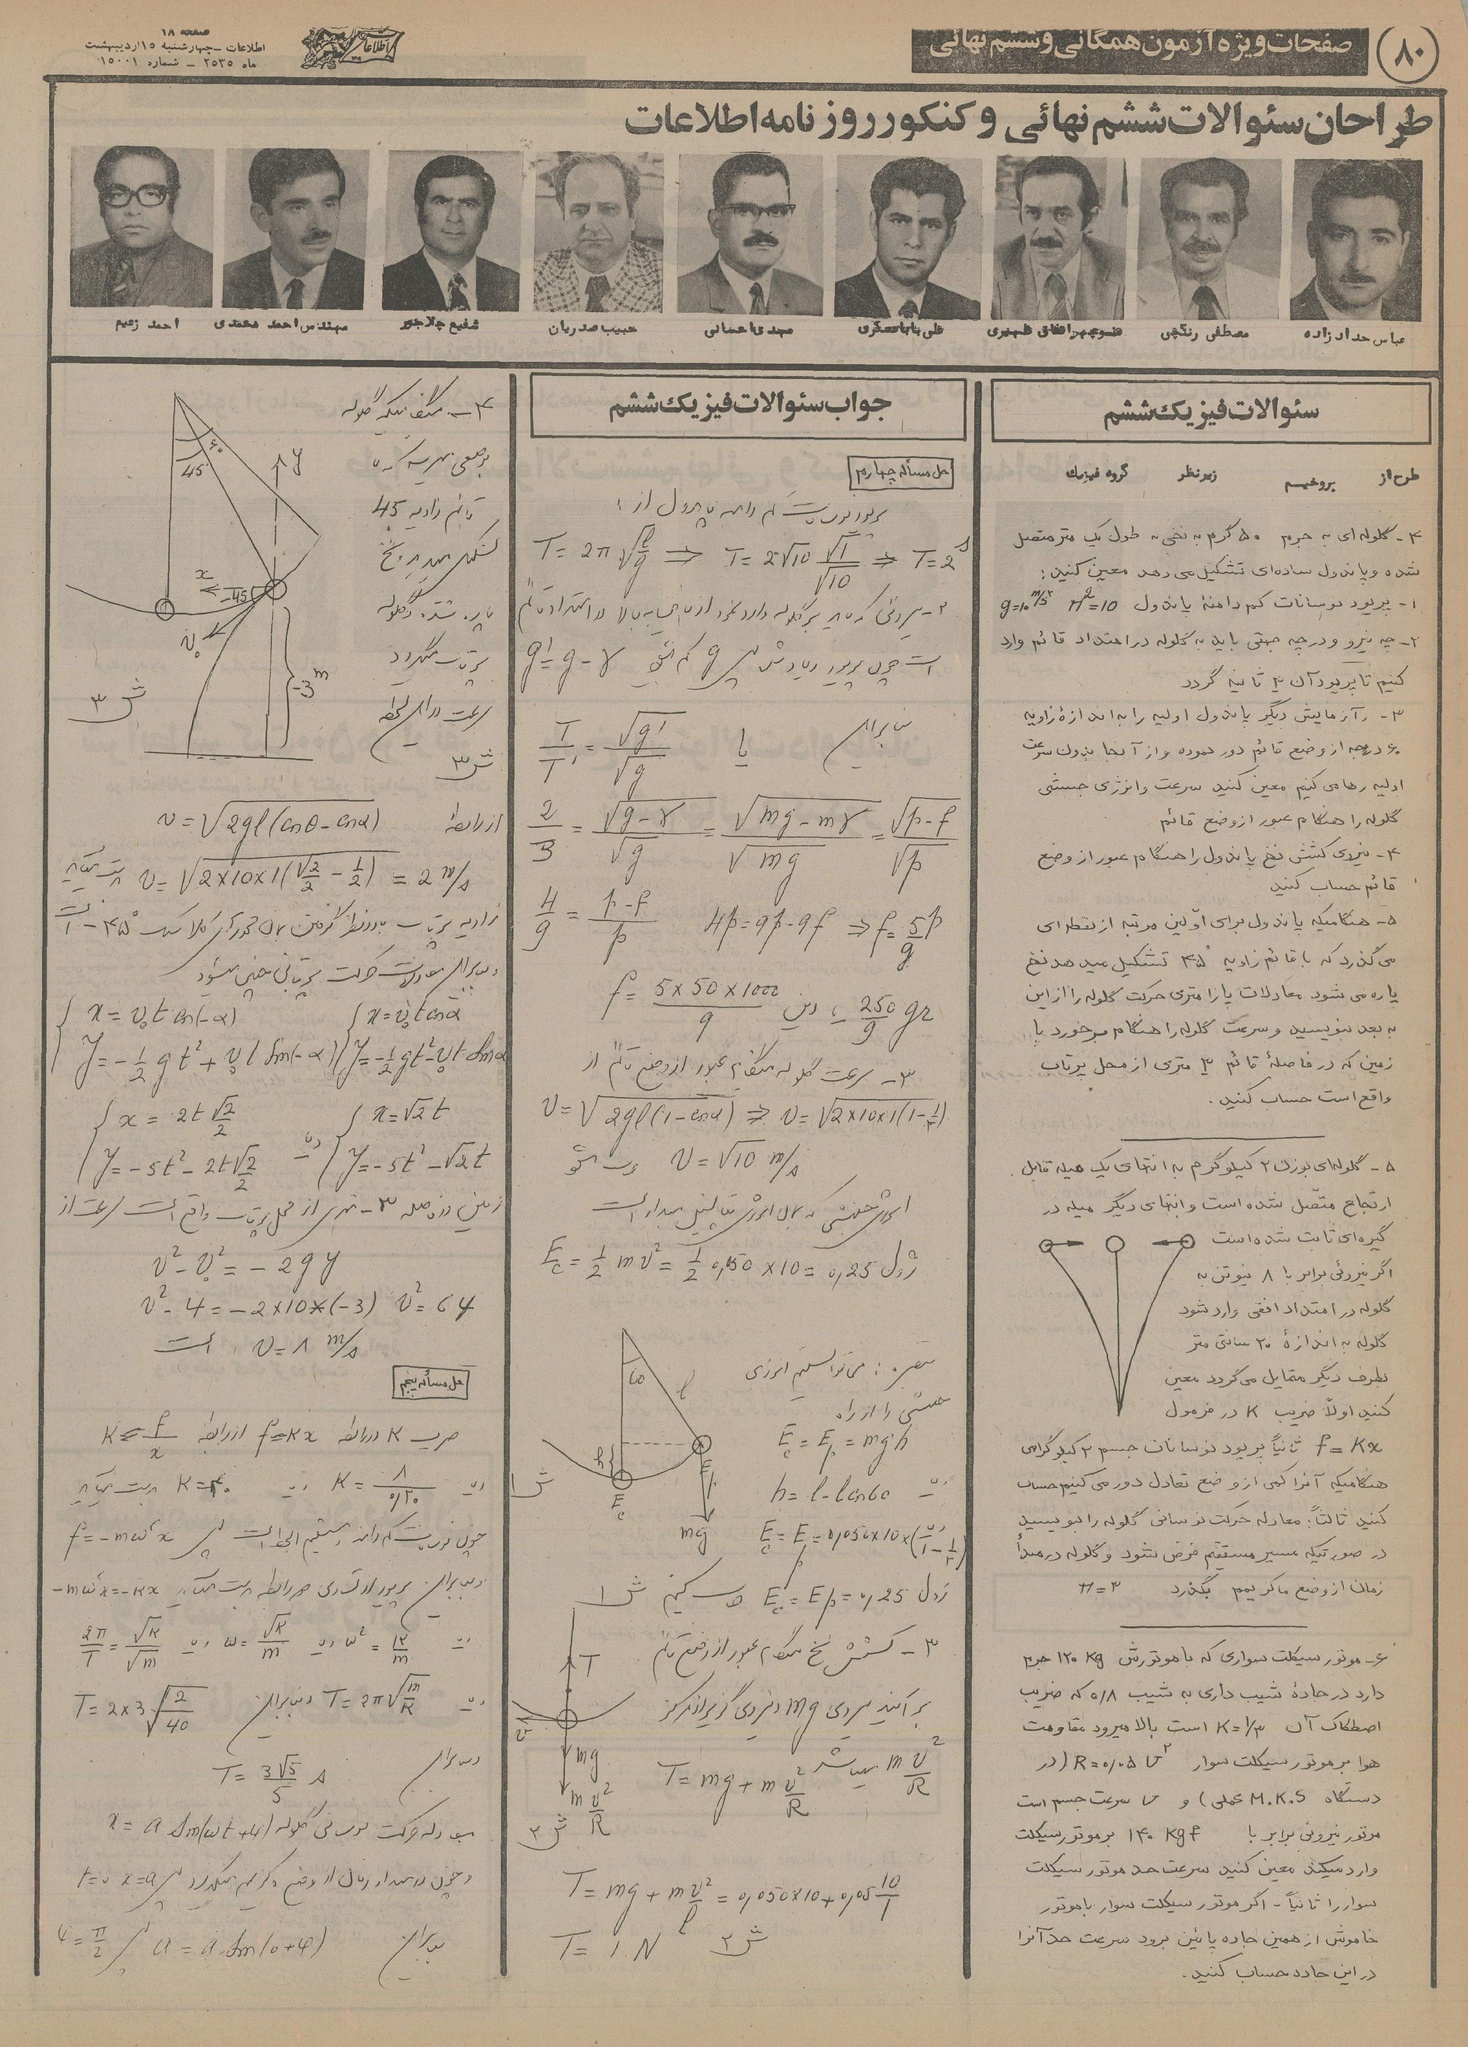 صفحه ۱۸
اطلاعات - چهارشنبه ۱۵ اردیبهشت
ماه ۲۵۳۵ - شماره ۱۵۰۰۱
صفحات ویژه آزمون همگانی و ششم نهائی
۸۰
طراحان سئوالات ششم نهائی و کنکور روزنامه اطلاعات
عباس حدادزاده
مصطفی رنگچی
منوچهر افاق ظهیری
قلی باباعسکری
مهدی احسانی
حبیب صدریان
شفیع چلاجور
مهندس احمد محمدی
احمد زعیم
سئوالات فیزیک ششم
طرح از بروخیم زیرنظر گروه فیزیک
۴- گلوله‌ای به جرم ۵۰ گرم به نخی به طول یک متر متصل
شده و پاندول ساده‌ای تشکیل می‌دهد معین کنید:
۱- پریود نوسانات کم دامنهٔ پاندول π²=10 g=10 m/s²
۲- چه نیرو و درچه جهتی باید به گلوله در امتداد قائم وارد
کنیم تا پریود آن ۳ ثانیه گردد
۳- در آزمایش دیگر پاندول اولیه را به اندازهٔ زاویه
۶۰ درجه از وضع قائم دور نموده و از آنجا بدون سرعت
اولیه رها می‌کنیم معین کنید سرعت و انرژی جنبشی
گلوله را هنگام عبور از وضع قائم
۴- نیروی کشش نخ پاندول را هنگام عبور از وضع
قائم حساب کنید
۵- هنگامیکه پاندول برای اوّلین مرتبه از نقطه‌ای
می‌گذرد که با قائم زاویه ۴۵° تشکیل میدهد نخ
پاره می‌شود معادلات پارامتری حرکت گلوله را از این
به بعد بنویسید و سرعت گلوله را هنگام برخورد با
زمین که در فاصلهٔ قائم ۳ متری از محل پرتاب
واقع است حساب کنید.
۵- گلوله‌ای بوزن ۲ کیلوگرم به انتهای یک میله قابل
ارتجاع متّصل شده است و انتهای دیگر میله در
گیره‌ای ثابت شده است
اگر نیروئی برابر با ۸ نیوتن به
گلوله در امتداد افقی وارد شود
گلوله به اندازهٔ ۲۰ سانتی متر
بطرف دیگر متمایل می‌گردد معین
کنید اولاً ضریب K در فرمول
f = Kx ثانیاً پریود نوسانات جسم ۲ کیلوگرمی
هنگامیکه آنرا کمی از وضع تعادل دور می‌کنیم حساب
کنید ثالثاً: معادله حرکت نوسانی گلوله را بنویسید
در صورتیکه مسیر مستقیم فرض شود و گلوله در مبدأ
زمان از وضع ماکزیمم بگذرد π=۳
۶- موتور سیکلت سواری که با موتورش ۱۲۰ Kg جرم
دارد در جادهٔ شیب داری به شیب ۰/۸ که ضریب
اصطکاک آن K=۱/۳ است بالا میرود مقاومت
هوا بر موتور سیکلت سوار R=۰/۰۵ v² (در
دستگاه M.K.S عملی) و v سرعت جسم است
موتور نیروئی برابر با ۱۴۰ Kgf بر موتور سیکلت
وارد میکند معین کنید سرعت حد موتور سیکلت
سوار را ثانیاً - اگر موتور سیکلت سوار با موتور
خاموش از همین جاده پائین برود سرعت حد آنرا
در این جاده حساب کنید.
جواب سئوالات فیزیک ششم
حل مسأله چهارم
T = 2π √l/g ⇒ T = 2√10 √1/√10 ⇒ T = 2ˢ
است چون پریود زیاد شده پس g کم شده g' = g - γ
بنابراین T/T' = √g'/√g یا
2/3 = √g-γ/√g = √mg-mγ/√mg = √p-f/√p
4/9 = p-f/p 4p = 9p-9f ⇒ f = 5/9 p
f = 5×50×1000/9 دین یا 250/9 gr
۳- سرعت گلوله هنگام عبور از وضع قائم از
v = √2gl(1-cosα) ⇒ v = √2×10×1(1-1/2)
v = √10 m/s
Ec = 1/2 mv² = 1/2 0,050 ×10 = 0,25 ژول
تبصره: می‌توانستیم انرژی
جنبشی را از راه
Ec = Ep = mgh
h = l - l cos60
Ec = Ep = 0,050×10×(1-1/2)
Ec = Ep = 0,25 ژول حساب کنیم
60
l
h
Ec
mg
ش ۱
۳- کشش نخ هنگام عبور از وضع قائم
برآیند نیروی mg و نیروی گریز از مرکز
mv²/R میباشد T = mg + m v²/R
T
v
mg
m v²/R
ش ۲
T = mg + m v²/l = 0,050×10+0,05 10/1
T = 1. N ش ۲
۴- هنگامیکه گلوله
بوضعی میرسد که با
قائم زاویه 45
تشکیل میدهد نخ
پاره شده و گلوله
پرتاب میگردد
سرعت در این لحظه
ش ۳
45
60
y
x
-45
v₀
-3 m
ش ۳
از رابطه v = √2gl(cosθ-cosα)
v = √2×10×1(√2/2 - 1/2) = 2 m/s بدست میآید
x = v₀t cos(-α) x = v₀t cosα
y = -1/2 gt² + v₀t sin(-α) y = -1/2 gt² - v₀t sinα
x = 2t √2/2 x = √2 t
y = -5t² - 2t √2/2 یا y = -5t² - √2 t
زمین در فاصله ۳- متری از محل پرتاب واقع است سرعت از
v² - v₀² = -2gy
v² - 4 = -2×10×(-3) v² = 64
v = ۸ m/s است
حل مسأله پنجم
ضریب K در رابطه f=Kx از رابطه K = f/x
یا K = ۸/۰,۲۰ یا K=۴۰ بدست میآید
f = -mω²x
-mω²x = -Kx
یا ω² = K/m یا ω = √K/m یا 2π/T = √K/√m
یا T = 2π √m/K و بنابراین T = 2×3 √2/40
و بنابراین T = 3√5/5 s
معادله حرکت نوسانی گلوله x = a Sin(ωt+φ)
و چون در مبدا زمان از وضع ماکزیمم میگذرد پس x=a t=0
بنابراین a = a Sin(0+φ) پس φ = π/2